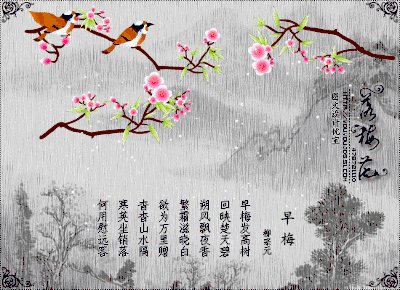 落梅花
早梅
柳宗元
早梅发高树
回映楚天碧
朔风飘夜香
繁霜滋晓白
欲为万里赠
杳杳山水隔
寒英坐销落
何用慰远客